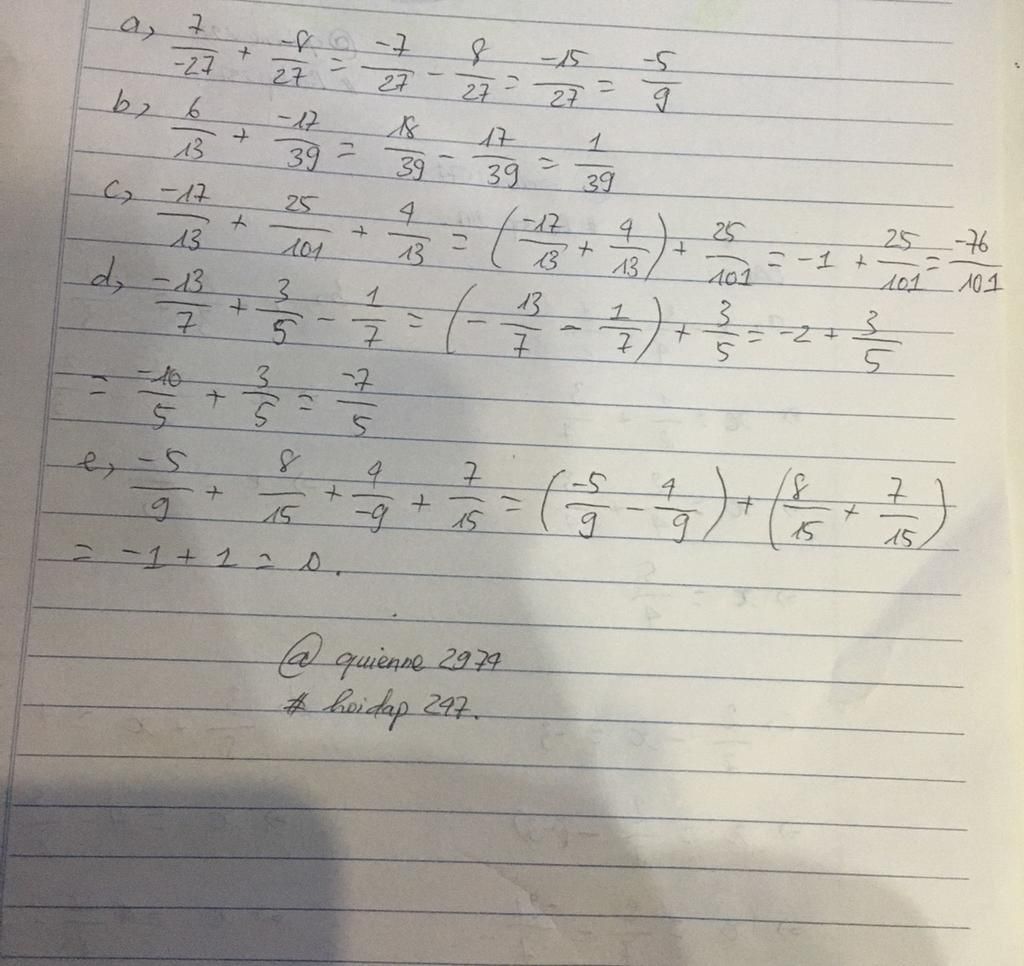 a, 7/-27 + -8/27 = -7/27 - 8/27 = -15/27 = -5/9
b, 6/13 + -17/39 = 18/39 - 17/39 = 1/39
c, -17/13 + 25/101 + 4/13 = (-17/13 + 4/13) + 25/101 = -1 + 25/101 = -76/101
d, -13/7 + 3/5 - 1/7 = (-13/7 - 1/7) + 3/5 = -2 + 3/5
= -10/5 + 3/5 = -7/5
e, -5/9 + 8/15 + 4/-9 + 7/15 = (-5/9 - 4/9) + (8/15 + 7/15)
= -1 + 1 = 0.
@ quienne 2974
# hoidap 247.